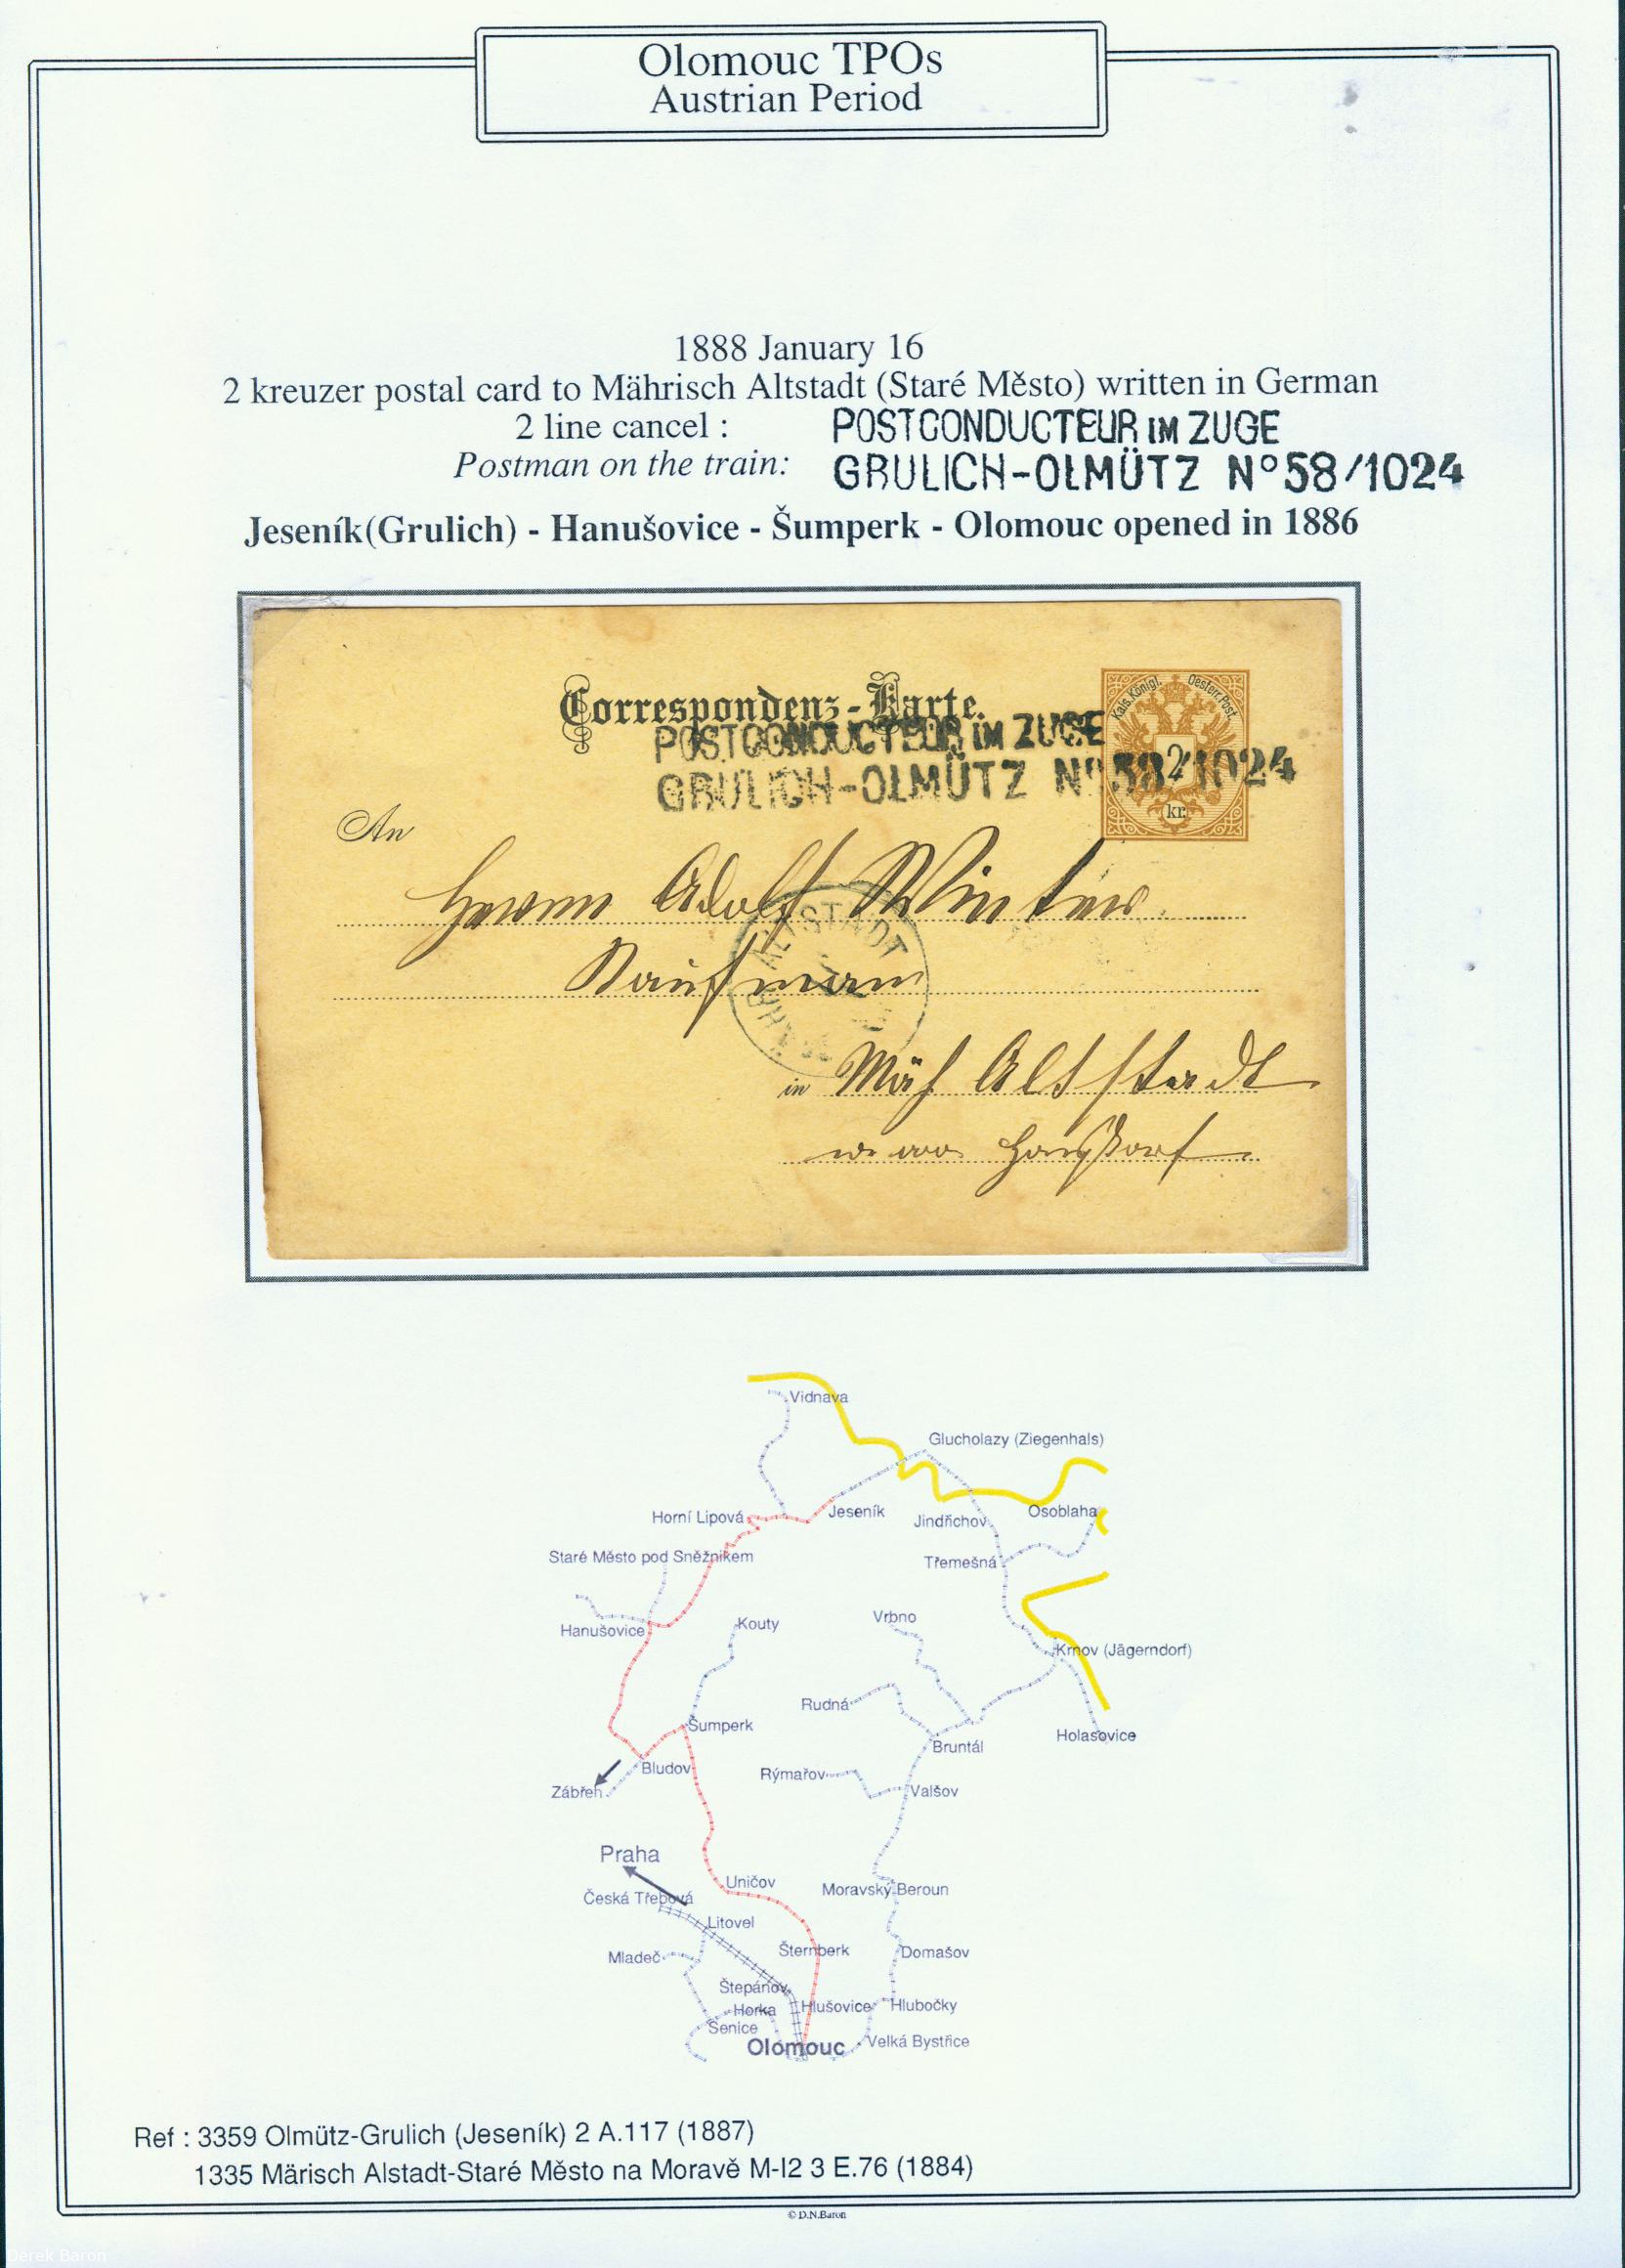 Olomouc TPOs
Austrian Period
1888 January 16
2 kreuzer postal card to Mährisch Altstadt (Staré Město) written in German
2 line cancel : POSTCONDUCTEUR IM ZUGE
Postman on the train: GRULICH-OLMÜTZ N° 58/1024
Jeseník(Grulich) - Hanušovice - Šumperk - Olomouc opened in 1886
Kais. Königl. Oesterr. Post.
Correspondenz-Karte.
POSTCONDUCTEUR IM ZUGE
GRULICH-OLMÜTZ N° 58/1024
2
kr.
An
Herrn Adolf Winter
ALTSTADT
Kaufmann
in Mäh Altstadt
Hansdorf
Vidnava
Glucholazy (Ziegenhals)
Horní Lipová
Jeseník
Jindřichov
Osoblaha
Staré Město pod Sněžnikem
Třemešná
Hanušovice
Kouty
Vrbno
Krnov (Jägerndorf)
Rudná
Šumperk
Holasovice
Bruntál
Bludov
Rýmařov
Zábřeh
Valšov
Praha
Uničov
Moravský Beroun
Česká Třebová
Litovel
Mladeč
Šternberk
Domašov
Štepánov
Horka
Hlušovice
Hlubočky
Senice
Olomouc
Velká Bystřice
Ref : 3359 Olmütz-Grulich (Jeseník) 2 A.117 (1887)
1335 Märisch Alstadt-Staré Město na Moravě M-I2 3 E.76 (1884)
© D.N.Baron
Derek Baron